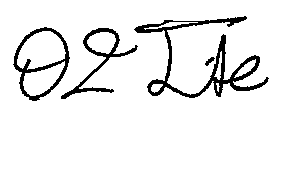 O2 Lite